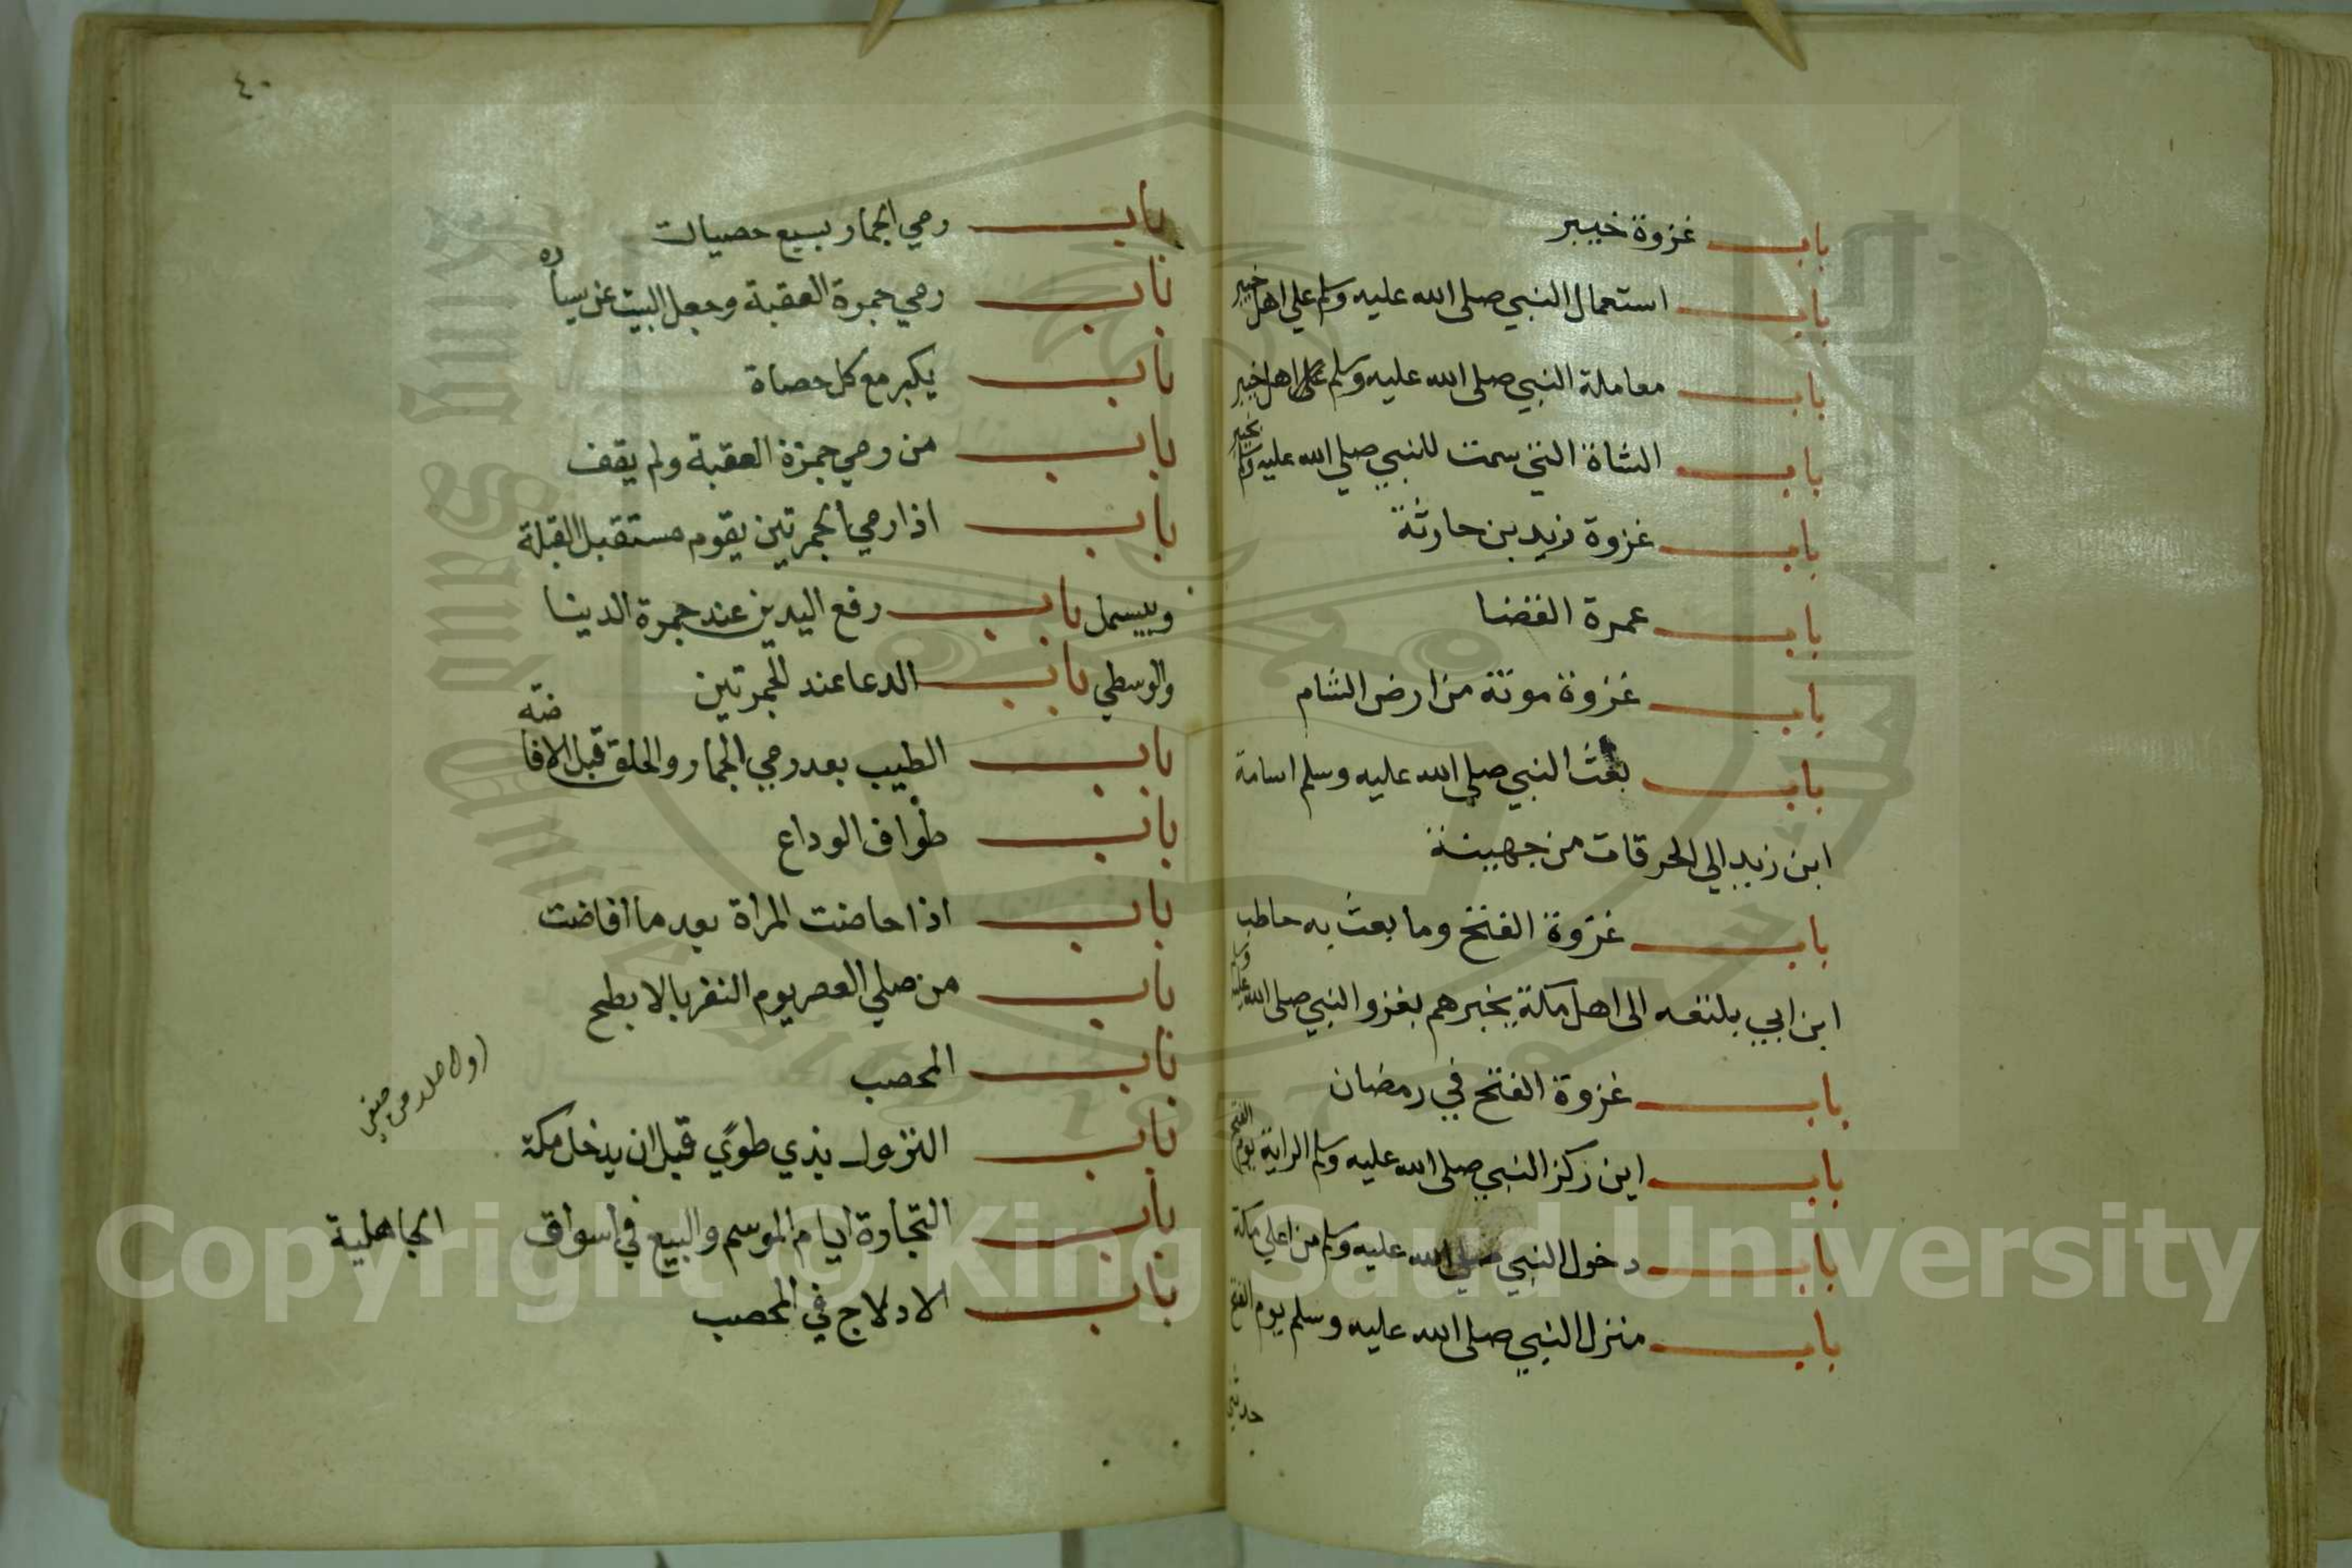 باب غزوة خيبر
باب استعمال النبي صلى الله عليه وسلم علي اهل خيبر
باب معاملة النبي صلى الله عليه وسلم اهل خيبر
باب الشاة التي سمت للنبي صلي الله عليه وسلم بخيبر
باب غزوة زيد بن حارثة
باب عمرة القضا
باب غزوة موتة من ارض الشام
باب بعث النبي صلى الله عليه وسلم اسامة
ابن زيد الي الحرقات من جهينة
باب غزوة الفتح وما بعث به حاطب
ابن ابي بلتعه الى اهل مكة يخبرهم بغزو النبي صلى الله عليه وسلم
باب غزوة الفتح في رمضان
باب اين ركز النبي صلى الله عليه وسلم الراية يوم الفتح
باب دخول النبي صلي الله عليه وسلم من اعلي مكة
باب منزل النبي صلى الله عليه وسلم يوم الفتح
٤٠
باب رمي الجمار بسبع حصيات
باب رمي جمرة العقبة وجعل البيت عن يساره
باب يكبر مع كل حصاة
باب من رمي جمرة العقبة ولم يقف
باب اذا رمي الجمرتين يقوم مستقبل القبلة
ويسهل باب رفع اليدين عند جمرة الدنيا
والوسطي باب الدعا عند الجمرتين
باب الطيب بعد رمي الجمار والحلق قبل الافاضة
باب طواف الوداع
باب اذا حاضت المراة بعد ما افاضت
باب من صلي العصر يوم النفر بالابطح
باب المحصب
باب النزول بذي طوي قبل ان يدخل مكة
باب التجارة ايام الموسم والبيع في اسواق الجاهلية
باب الادلاج في المحصب
Copyright © King Saud University